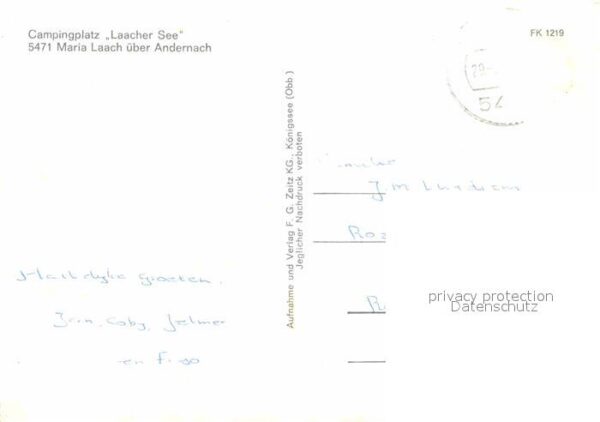 Campingplatz „Laacher See"
5471 Maria Laach über Andernach
FK 1219
54
Aufnahme und Verlag F. G. Zeitz KG., Königssee (Obb.)
Jeglicher Nachdruck verboten
Hartelyke groeten.
Jan, Coby, Jelmer
en
privacy protection
Datenschutz